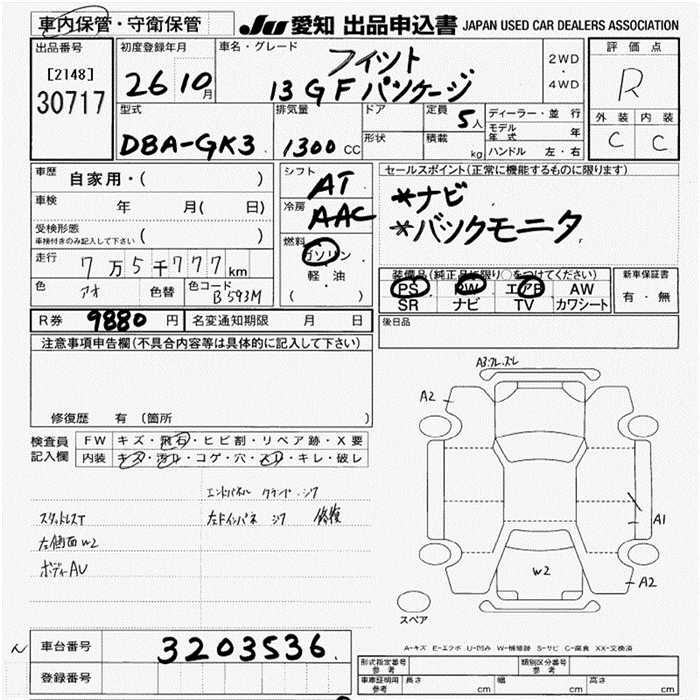 車内保管・守衛保管
JU 愛知 出品申込書 JAPAN USED CAR DEALERS ASSOCIATION
出品番号
[2148]
30717
初度登録年月
26 10月
車名・グレード
フィット
13GFパッケージ
2WD
・
4WD
評価点
R
外装 内装
C C
型式
DBA-GK3
排気量
1300 CC
ドア
形状
定員
5人
積載
kg
ディーラー・並行
モデル年式 年
ハンドル 左・右
車歴 自家用・( )
車検 年 月( 日)
受検形態
車検付きのみ記入して下さい ( )
走行 7万5千777km
色 アオ 色替 色コード B593M
シフト
AT
冷房
AAC
燃料
ガソリン
軽・油
( )
セールスポイント(正常に機能するものに限ります)
*ナビ
*バックモニタ
装備品(純正品に限り○をつけてください)
PS PW エアB AW
SR ナビ TV カワシート
新車保証書
有・無
後日品
R券 9880円 名変通知期限 月 日
注意事項申告欄(不具合内容等は具体的に記入して下さい)
修復歴 有(箇所
検査員記入欄
FW キズ・飛石・ヒビ割・リペア跡・X要
内装 キズ・汚れ・コゲ・穴・スレ・キレ・破レ
スタッドレスT
左側面W2
ボディAU
左ドインパネ ジワ 修復
A3 フレ.スレ
A2
A1
A2
W2
スペア
A-キズ E-エクボ U-凹み W-補修跡 S-サビ C-腐食 XX-交換済
車台番号 3203536
登録番号
形式指定番号
参考
類別区分番号
参考
車庫証明用
参考
長さ cm 幅 cm 高さ cm